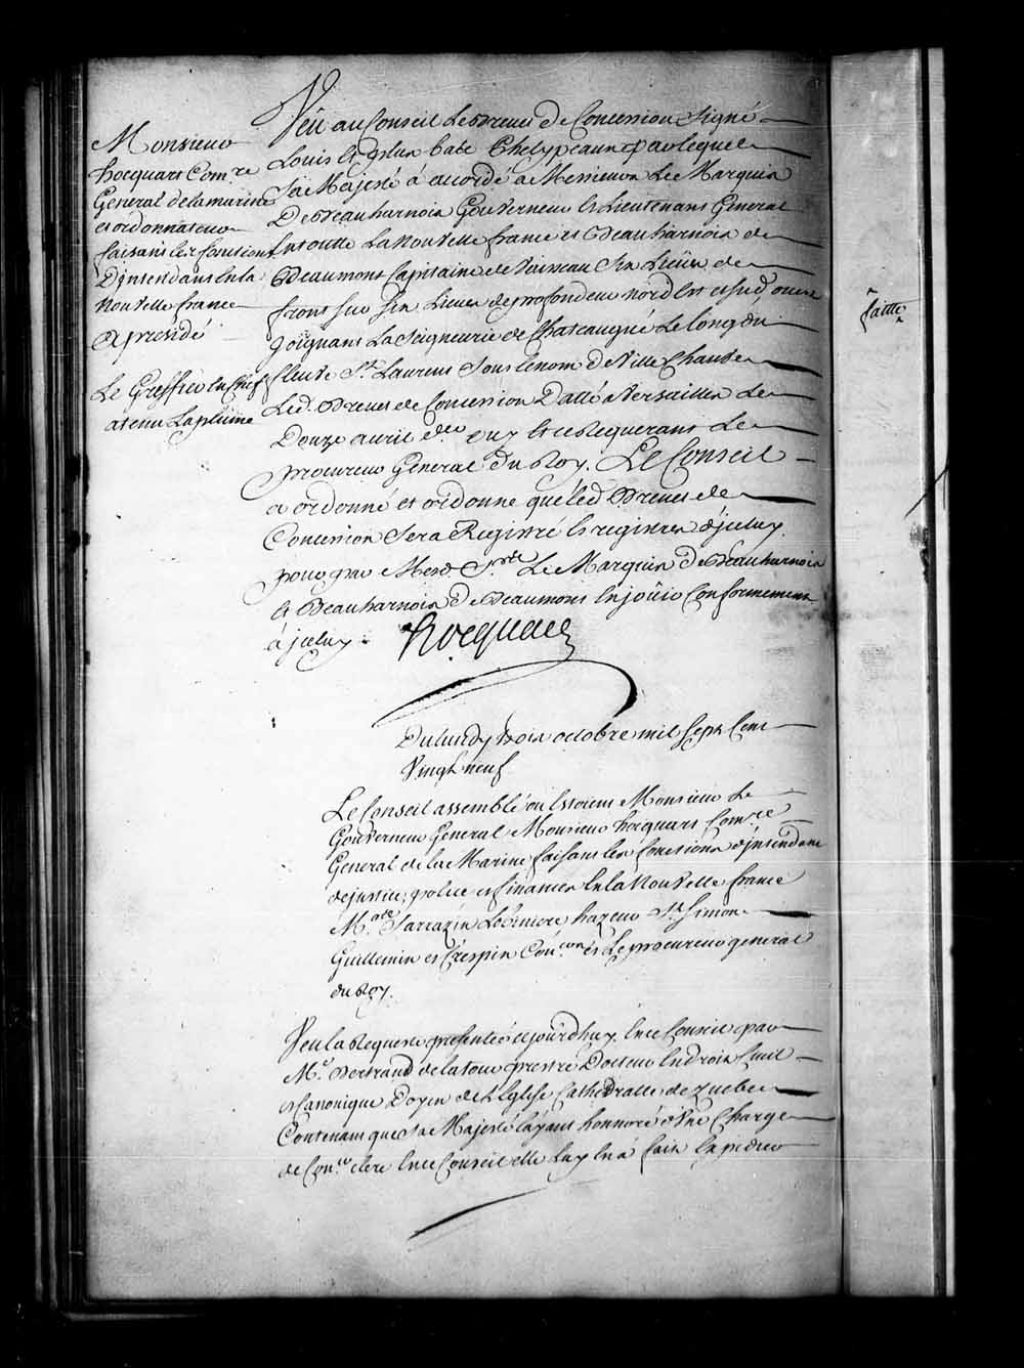 Monsieur
hocquart Com.re
General delamarine
et ordonnateur
faisant les fonctions
Dintendant en la
Nouvelle france
a presidé
Le Greffier en Chef
a tenu La plume
Veu au Conseil Le Brevet De Concession Signé
Louis Et plus bas Phelypeaux par lequel
Sa Majesté a accordé a Messieurs Le Marquis
De Beauharnois Gouverneur et Lieutenant General
En toutte La Nouvelle france et Beauharnois de
Beaumont Capitaine de Vaisseau Six Lieües de
front sur Six Lieues de profondeur nord Est et Sud ouest
Joignant La Seigneurie de Chateaugué Le long du
fleuve St. Laurent Sous le nom de Ville Chauve
Led. Brevet de Concession Datté a Versailles Le
Douze avril d.er ouy Et ce Requerant Le
procureur General Du Roy. Le Conseil
a ordonné et ordonne que led Brevet de
Concession Sera Registré Es registres d'iceluy
pour par Mesd. S.rs Le Marquis De Beauharnois
Et Beauharnois De Beaumont En joüir Conformement
a iceluy
hocquart
Du lundy trois octobre mil Sept Cent
Vingt neuf
Le Conseil assemblé ou Estoient Monsieur Le
Gouverneur General Monsieur hocquart Com.re
General de la Marine faisant les fonctions d'intendant
de justice, police et finances En la Nouvelle france
M. Sarrazin Lotbiniere hazeur St. Simon
Guillemin et Crespin Con.ers et Le procureur general
du Roy.
Veu la Requeste presentée cejourd'huy En ce Conseil par
M.e Bertrand de la tour prestre Docteur En droit Civil
et Canonique Doyen de L'Eglise Cathedralle de Quebec
Contenant que Sa Majesté L'ayant honnoré d'Une Charge
de Con.er clerc En ce Conseil elle Luy En a fait Expedier
faitte